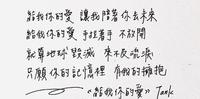 給我你的愛 讓我陪著你去未來
給我你的愛 手拉著手 不放開
就算地球毀滅 來不及流淚
只願你的記憶裡 有我的擁抱
《給我你的愛》 Tank